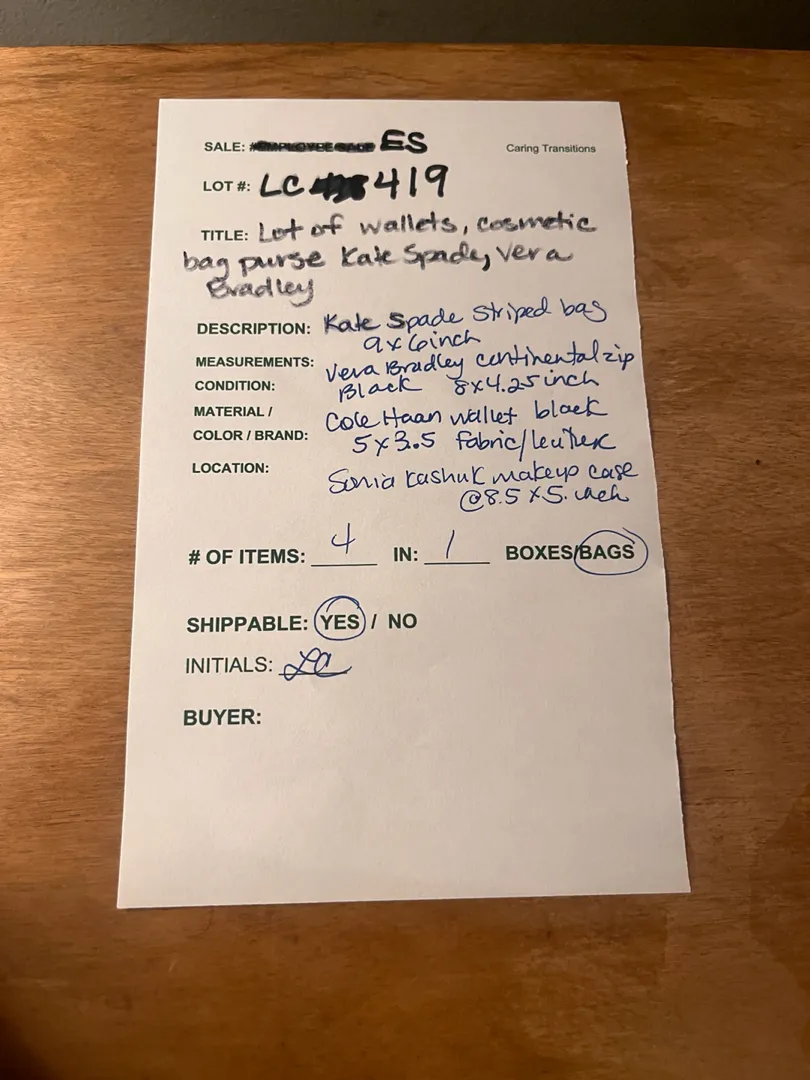 SALE: #EMPLOYEE SALE ES
Caring Transitions
LOT #: LC 419
TITLE: Lot of wallets, cosmetic
bag purse Kate Spade, Vera
Bradley
DESCRIPTION: Kate Spade Striped bag
9x6inch
MEASUREMENTS: Vera Bradley continental zip
CONDITION: Black 8x4.25inch
MATERIAL / Cole Haan wallet black
COLOR / BRAND: 5x3.5 fabric/leather
LOCATION: Sonia Kashuk makeup case
@8.5 x 5. inch
# OF ITEMS: 4 IN: 1 BOXES/BAGS
SHIPPABLE: YES / NO
INITIALS: LC
BUYER: